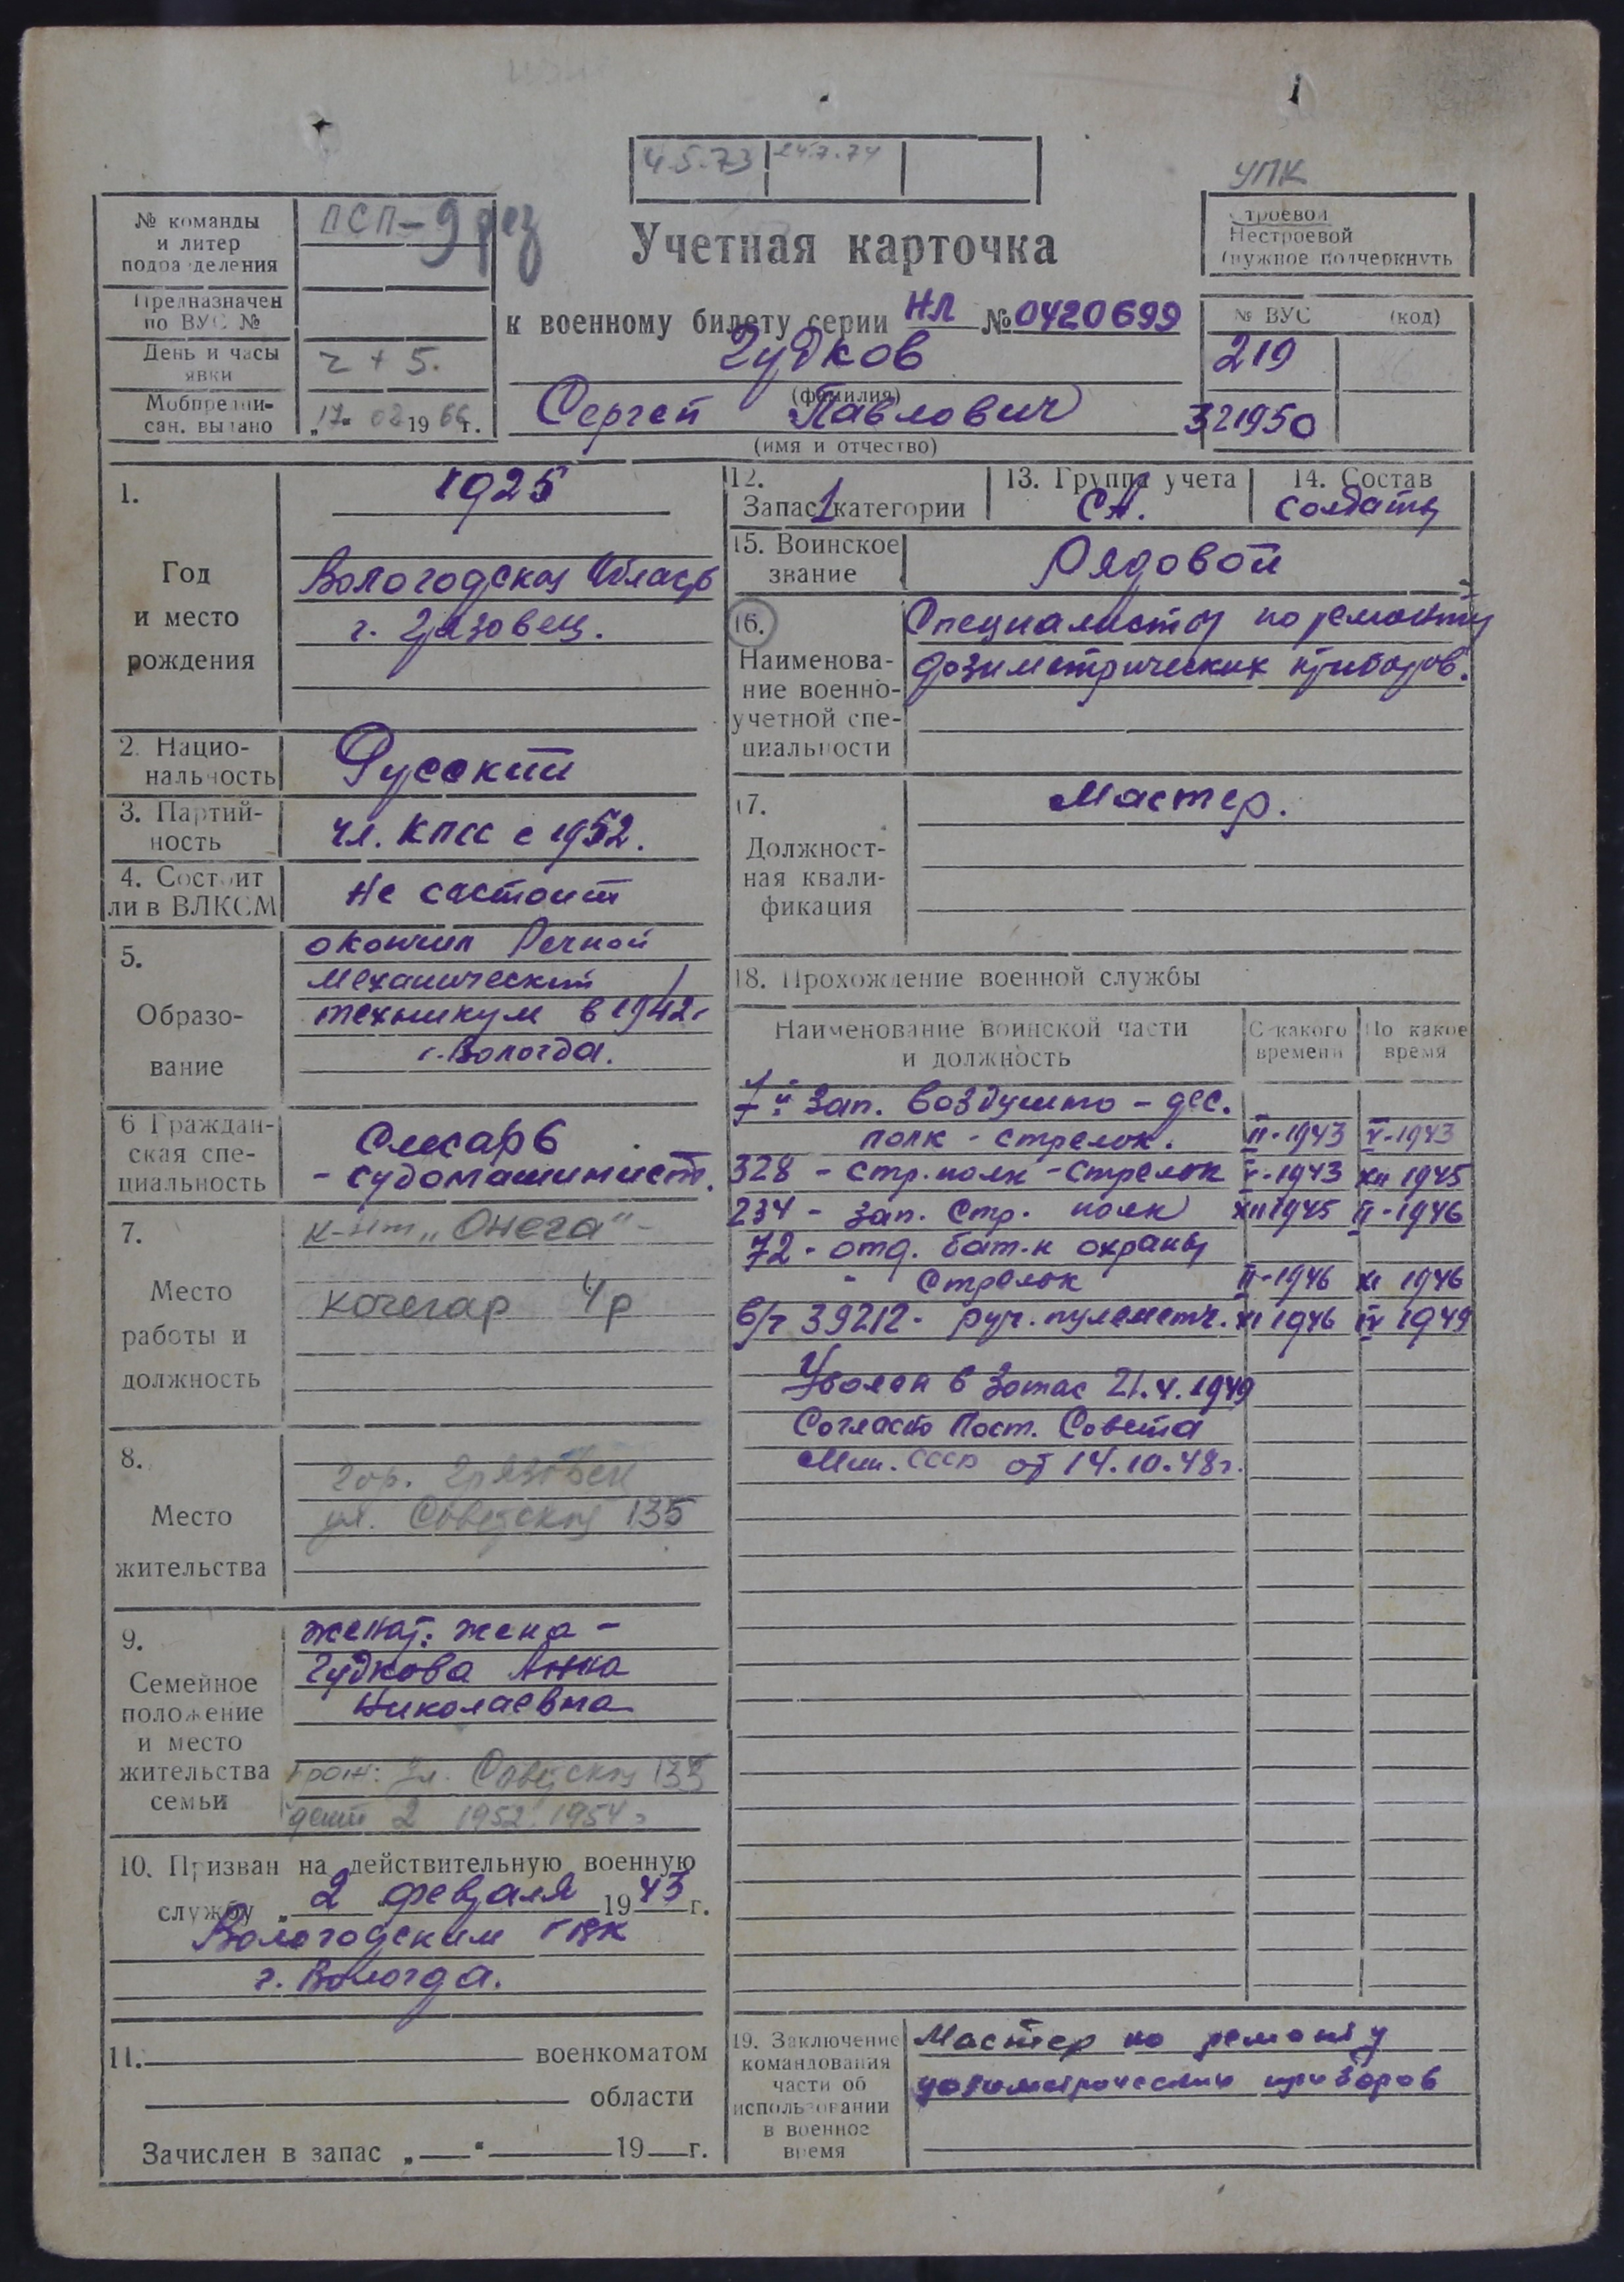 4.5.73 24.7.74
УПК
№ команды
и литер
подразделения
ПСП-9 рез
Учетная карточка
Строевой
Нестроевой
(нужное подчеркнуть
Предназначен
по ВУС №
к военному билету серии НЛ № 0420699
№ ВУС (код)
День и часы
явки
Ч + 5.
Гудков
(фамилия)
219
Мобпредпи-
сан. выдано
„17“ 02 1966 г.
Сергей Павлович
(имя и отчество)
321950
1.
Год
и место
рождения
1925
Вологодская область
г. Грязовец.
2. Нацио-
нальность
Русский
3. Партий-
ность
чл. КПСС с 1952.
4. Состоит
ли в ВЛКСМ
Не состоит
5.
Образо-
вание
окончил Речной
механический
техникум в 1942г
г. Вологда.
6 Граждан-
ская спе-
циальность
Слесарь
- судомашинист.
7.
Место
работы и
должность
к-нт „Онега“ -
кочегар 4р
8.
Место
жительства
гор. Грязовец
ул. Советская 135
9.
Семейное
положение
и место
жительства
семьи
женат: жена -
Гудкова Анна
Николаевна
ул. Советская 135
дети 2 1952. 1954г
10. Призван на действительную военную
службу „2 февраля 1943 г.
Вологодским ГВК
г. Вологда.
11. военкоматом
области
Зачислен в запас „ “ 19 г.
12.
Запас 1 категории
13. Группа учета
СА.
14. Состав
солдаты
15. Воинское
звание
Рядовой
16.
Наименова-
ние военно-
учетной спе-
циальности
Специалисты по ремонту
дозиметрических приборов.
17.
Должност-
ная квали-
фикация
Мастер.
18. Прохождение военной службы
Наименование воинской части
и должность
С какого
времени
По какое
время
1й зап. воздушно - дес.
полк - стрелок. II-1943 V-1943
328 - стр. полк - стрелок V-1943 XII 1945
234 - зап. стр. полк XII 1945 II-1946
72 - отд. бат-н охраны
- стрелок II-1946 XI 1946
в/ч 39212 - руч. пулеметч. XI 1946 IV 1949
Уволен в запас 21.4.1949
Согласно Пост. Совета
Мин. СССР от 14.10.48г.
19. Заключение
командования
части об
использовании
в военное
время
Мастер по ремонту
дозиметрических приборов